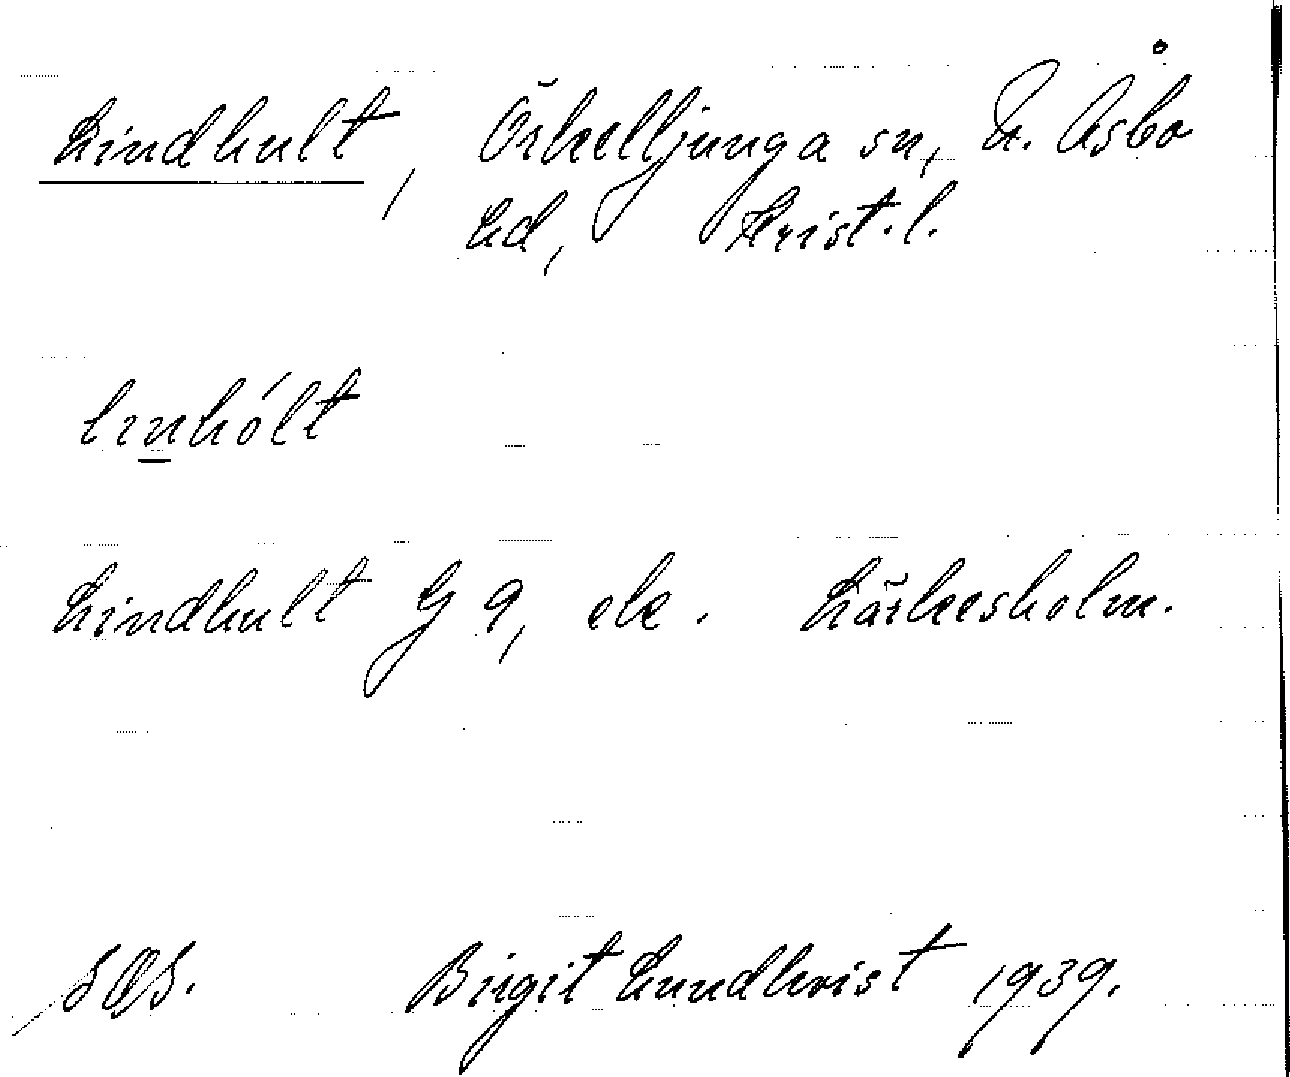 Lindhult, Örkelljunga sn, N. Åsbo
hd, Krist. l.
lınhólt
Lindhult G 9, ek. Lärkesholm.
SOS. Birgit Lundkvist 1939.